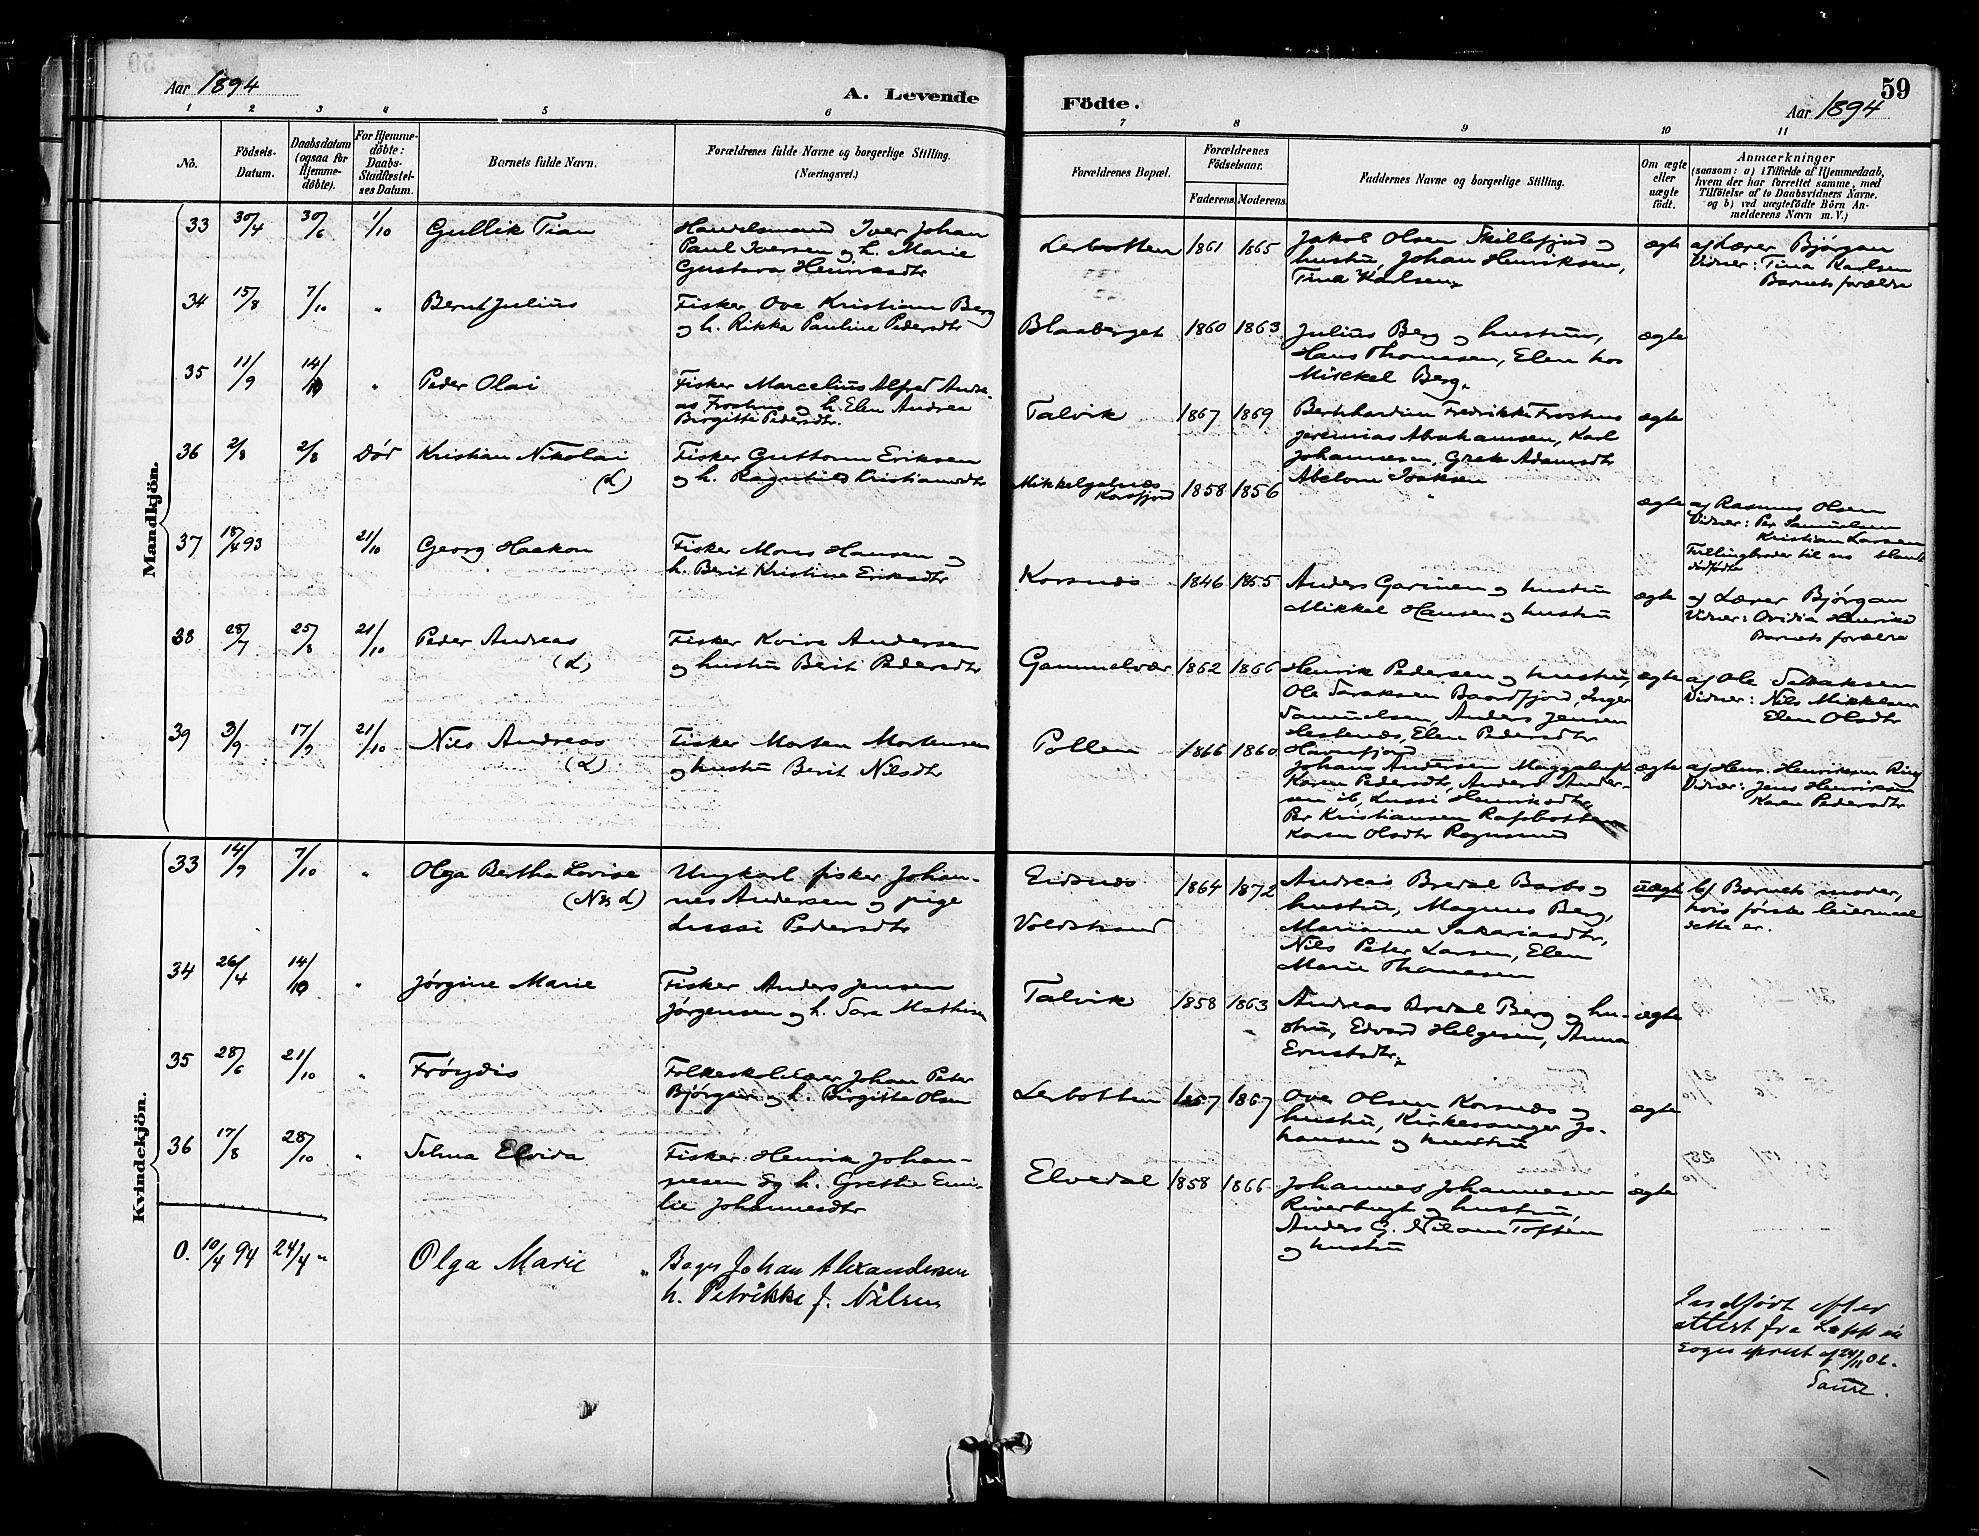 Aar 1894
A. Levende
1 2 3 4 5 6
No.
Födsels-
Datum.
Daabsdatum
(ogsaa for
Hjemme-
döbte).
For Hjemme-
döbte:
Daabs-
Stadfæstel-
ses Datum.
Barnets fulde Navn.
Forældrenes fulde Navne og borgerlige Stilling.
(Næringsvei.)
Mandkjön.
33 30/4 30/6 1/10 Gullik Tian Handelsmand Iver Johan
Paul Iversen og h. Marie
Gustava Henriksdtr
34 15/8 7/10 " Bernt Julius Fisker Ove Kristian Berg
og h. Rikka Pauline Pedersdtr
35 11/9 14/10 " Peder Olai Fisker Marcelius Alfred Andre-
as Frosthus og h. Elen Andrea
Birgitte Pedersdtr.
36 2/8 2/8 Död Kristian Nikolai Fisker Guttorm Eriksen
(L) og h. Ragnhild Kristiansdtr
37 18/4 93 21/10 Georg Haakon Fisker Mons Hansen og
h. Berit Kristine Eriksdtr
38 28/7 25/8 21/10 Peder Andreas Fisker Kvive Andersen
(L) og hustru Berit Pedersdtr
39 3/9 17/9 21/10 Nils Andreas Fisker Morten Mortensen
(L) og hustru Berit Nilsdtr
Kvindekjön.
33 14/9 7/10 " Olga Bertha Lovise Ungkarl fisker Johan-
(N og L) nes Andersen og pige
Lussi Pedersdtr
34 26/4 14/10 " Jørgine Marie Fisker Anders Jensen
Jørgensen og h. Sara Mathisen
35 28/6 21/10 " Frøydis Folkeskolelærer Johan Peter
Bjørgan og h. Birgitte Olsen
36 17/8 28/10 " Selma Elvida Fisker Henrik Johan-
nesen og h. Grethe Emi-
lie Johannesdtr
0. 10/4 94 24/4 " Olga Marie " Bager Johan Alexandersen
h. Petrikke J. Nilsen
59
Födte.
Aar 1894
7 8 9 10 11
Forældrenes Bopæl.
Forældrenes
Födselsaar.
Faderens. Moderens.
Faddernes Navne og borgerlige Stilling.
Om ægte
eller
uægte
födt.
Anmærkninger
(saasom: a) i Tilfælde af Hjemmedaab,
hvem der har forrettet samme, med
Tilföielse af to Daabsvidners Navne.
og b) ved uægtefödte Börn An-
melderens Navn m. V.)
Lerbotten 1861 1865 Jakob Olsen Skillefjord og ægte af Lærer Bjørgan
hustru, Johan Henriksen, Vidner: Tina Karlsen
Tina Karlsen. Barnets forældre
Blaaberget 1860 1863 Julius Berg og hustru, ægte
Hans Thomasen, Elen hos
Mikkel Berg.
Talvik 1867 1869 Bernhardine Fredrikke Frosthus ægte
Jeremias Abrahamsen, Karl
Johannesen, Grete Adamsdtr
Abelone Isaksen
Mikkelgalsnæs
Korsfjord 1858 1856 " ægte af Rasmus Olsen
Vidner: Per Samuelsen
Kristian Larsen
Tvillingbroder til no blandt
dødfødte
Korsnæs 1846 1855 Anders Garinen og hustru ægte af Lærer Bjørgan
Mikkel Hansen og hustru Vidner: Ovidia Henriks
Barnets forældre
Gammelvær 1862 1866 Henrik Pedersen og hustru, ægte af Ole
Ole Baardfjord, Inger Vidner: Nils Mikkelsen
Samuelsen, Anders Jensen Elen Olsdtr
Hestenæs, Elen Pedersdtr
Havnfjord
Pollen 1866 1860 Johans Andersen ægte af Hens. Henriksen Ring
Karen Pedersdtr, Anders Ander- Vidner: Jens Henriksen
sen ib, Lussi Henriksdtr, Karen Pedersdtr
Per Kristiansen Rafsbotten
Karen Olsdtr
Eidsnæs 1864 1872 Andreas Bredal Barbs og uægte bf Barnets moder,
Voldstrand hustru, Magnus Berg, hvis første leiermaal
Marianne Sakariasdtr, dette er.
Nils Peter Larsen, Elen
Marie Thomasen
Talvik 1858 1863 Andreas Bredal Berg og hu- ægte
stru, Edvard Helgesen, Anna
Ernstsdtr.
Lerbotten 1857 1867 Ove Olsen Korsnæs og ægte
hustru, Kirkesanger Jo-
hansen og hustru
Elvedal 1858 1866 Johannes Johannesen ægte
Riverbugt og hustru,
Anders G. Nilsen Toften
og hustru
Indført efter
attest fra
Sogneprest af 24/11 06.